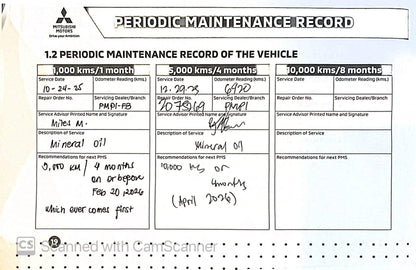 MITSUBISHI
MOTORS
Drive your Ambition
PERIODIC MAINTENANCE RECORD
1.2 PERIODIC MAINTENANCE RECORD OF THE VEHICLE
1,000 kms/1 month
Service Date Odometer Reading (kms.)
10-24-25
Repair Order No. Servicing Dealer/Branch
PMPI-FB
Service Advisor Printed Name and Signature
Miles M.
Description of Service
Mineral Oil
Recommendations for next PMS
5,000 KM / 4 months
on or before
Feb 20, 2026
which ever comes first
5,000 kms/4 months
Service Date Odometer Reading (kms.)
12-29-25 6920
Repair Order No. Servicing Dealer/Branch
2075269 PMPI
Service Advisor Printed Name and Signature
Description of Service
Mineral Oil
Recommendations for next PMS
10,000 kms or
4months
(April 2026)
10,000 kms/8 months
Service Date Odometer Reading (kms.)
Repair Order No. Servicing Dealer/Branch
Service Advisor Printed Name and Signature
Description of Service
Recommendations for next PMS
19
CS Scanned with CamScanner